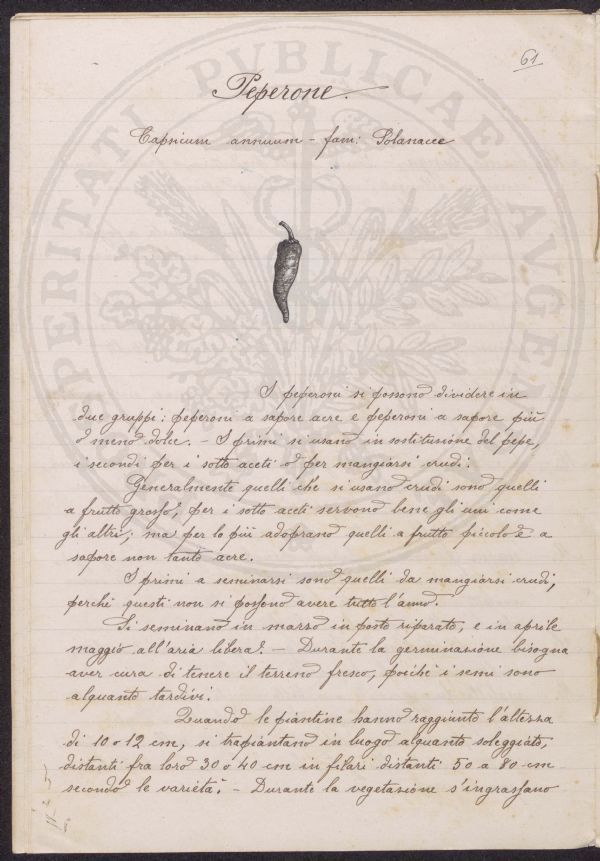 61
Peperone.
Capsicum annuum - fam: Solanacee
I peperoni si possono dividere in
due gruppi: peperoni a sapore acre e peperoni a sapore più
o meno dolce. - I primi si usano in sostituzione del pepe,
i secondi per i sotto aceti o per mangiarsi crudi.
Generalmente quelli che si usano crudi sono quelli
a frutto grosso, per i sotto aceti servono bene gli uni come
gli altri; ma per lo più adoprano quelli a frutto piccolo e a
sapore non tanto acre.
I primi a seminarsi sono quelli da mangiarsi crudi,
perchè questi non si possono avere tutto l'anno.
Si seminano in marzo in posto riparato, e in aprile
maggio all'aria libera. - Durante la germinazione bisogna
aver cura di tenere il terreno fresco, poichè i semi sono
alquanto tardivi.
Quando le piantine hanno raggiunto l'altezza
di 10 o 12 cm, si trapiantano in luogo alquanto soleggiato,
distanti fra loro 30 o 40 cm in filari distanti 50 a 80 cm
secondo le varietà. - Durante la vegetazione s'ingrassano
PUBLICAE
AUGEN
SPERITATI